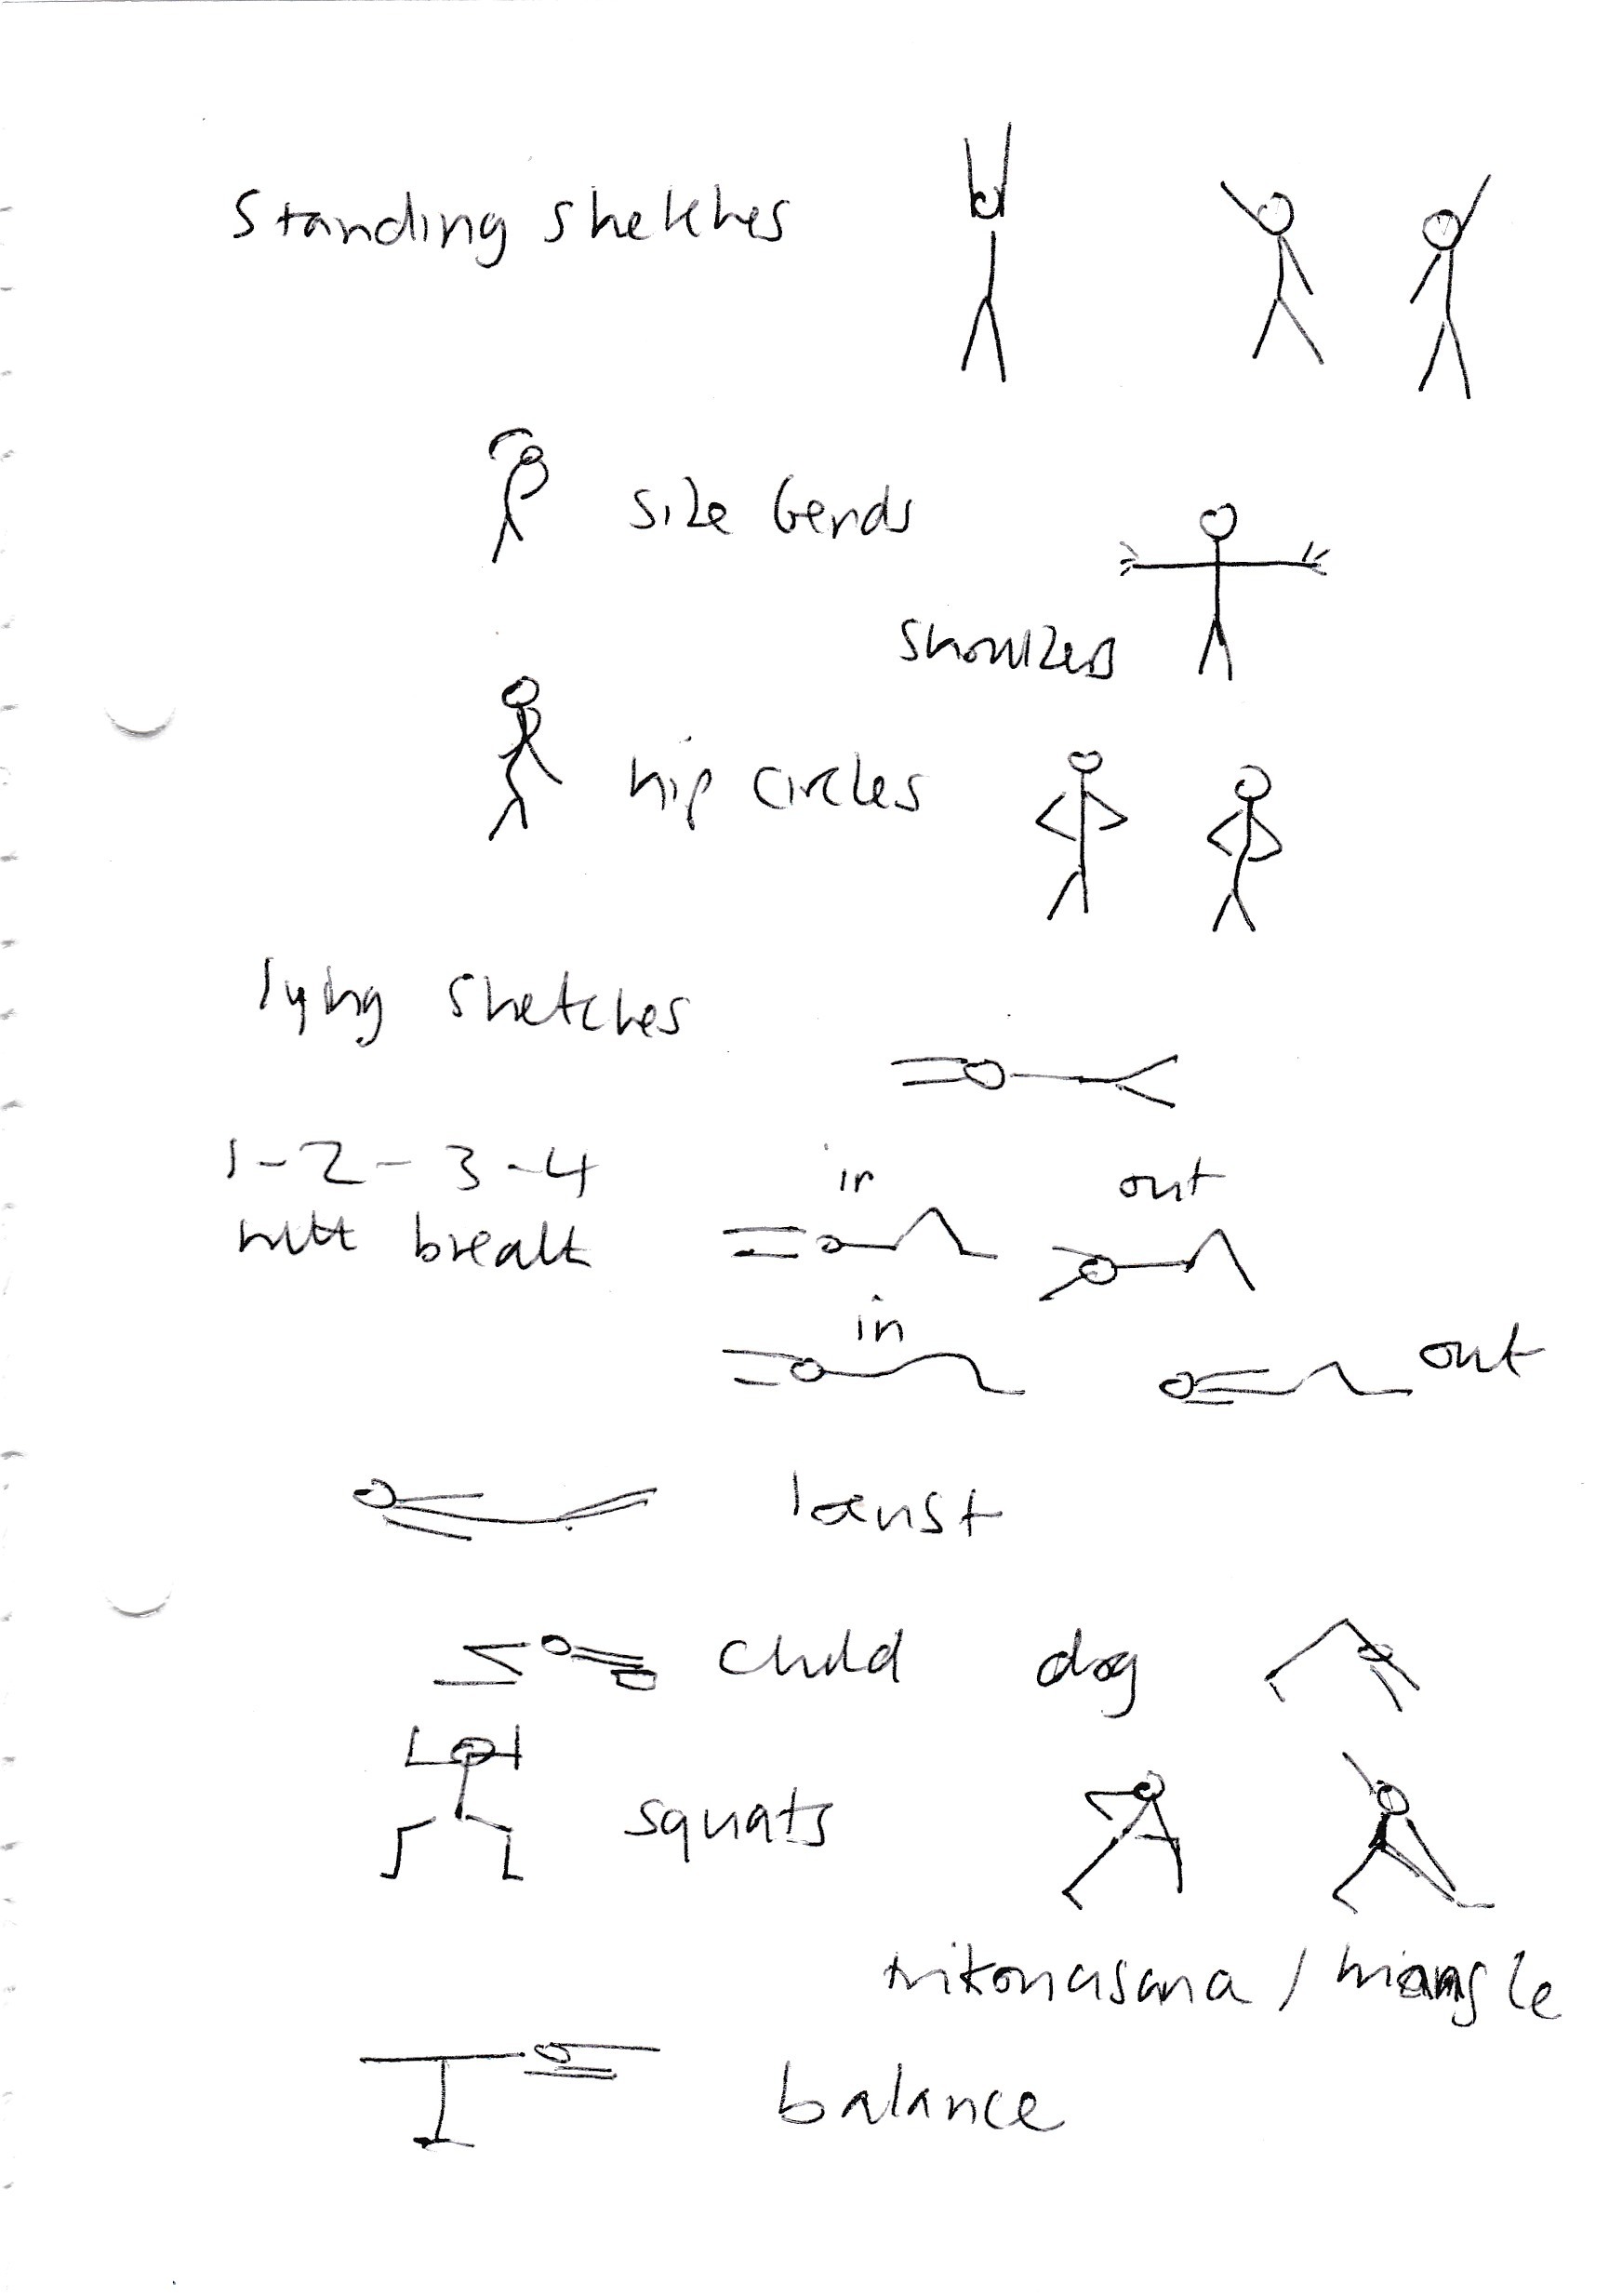 Standing stretches
side bends
shoulders
hip circles
lying stretches
1 - 2 - 3 - 4
in out
with breath
in
out
locust
child dog
squats
trikonasana / triangle
balance